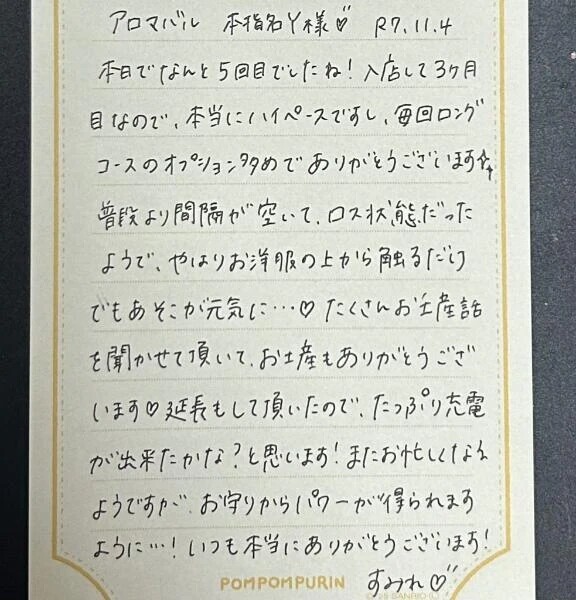 アロマバル 本指名Y様♡ R7.11.4
本日でなんと5回目でしたね！入店して3ヶ月
目なので、本当にハイペースですし、毎回ロング
コースのオプション多めでありがとうございます☆
普段より間隔が空いて、ロス状態だった
ようで、やはりお洋服の上から触るだけ
でもあそこが元気に…♡ たくさんお土産話
を聞かせて頂いて、お土産もありがとうござ
います♡延長もして頂いたので、たっぷり充電
が出来たかな？と思います！またお忙しくなる
ようですが、お守りからパワーが得られます
ように…！いつも本当にありがとうございます！
すみれ♡
POMPOMPURIN